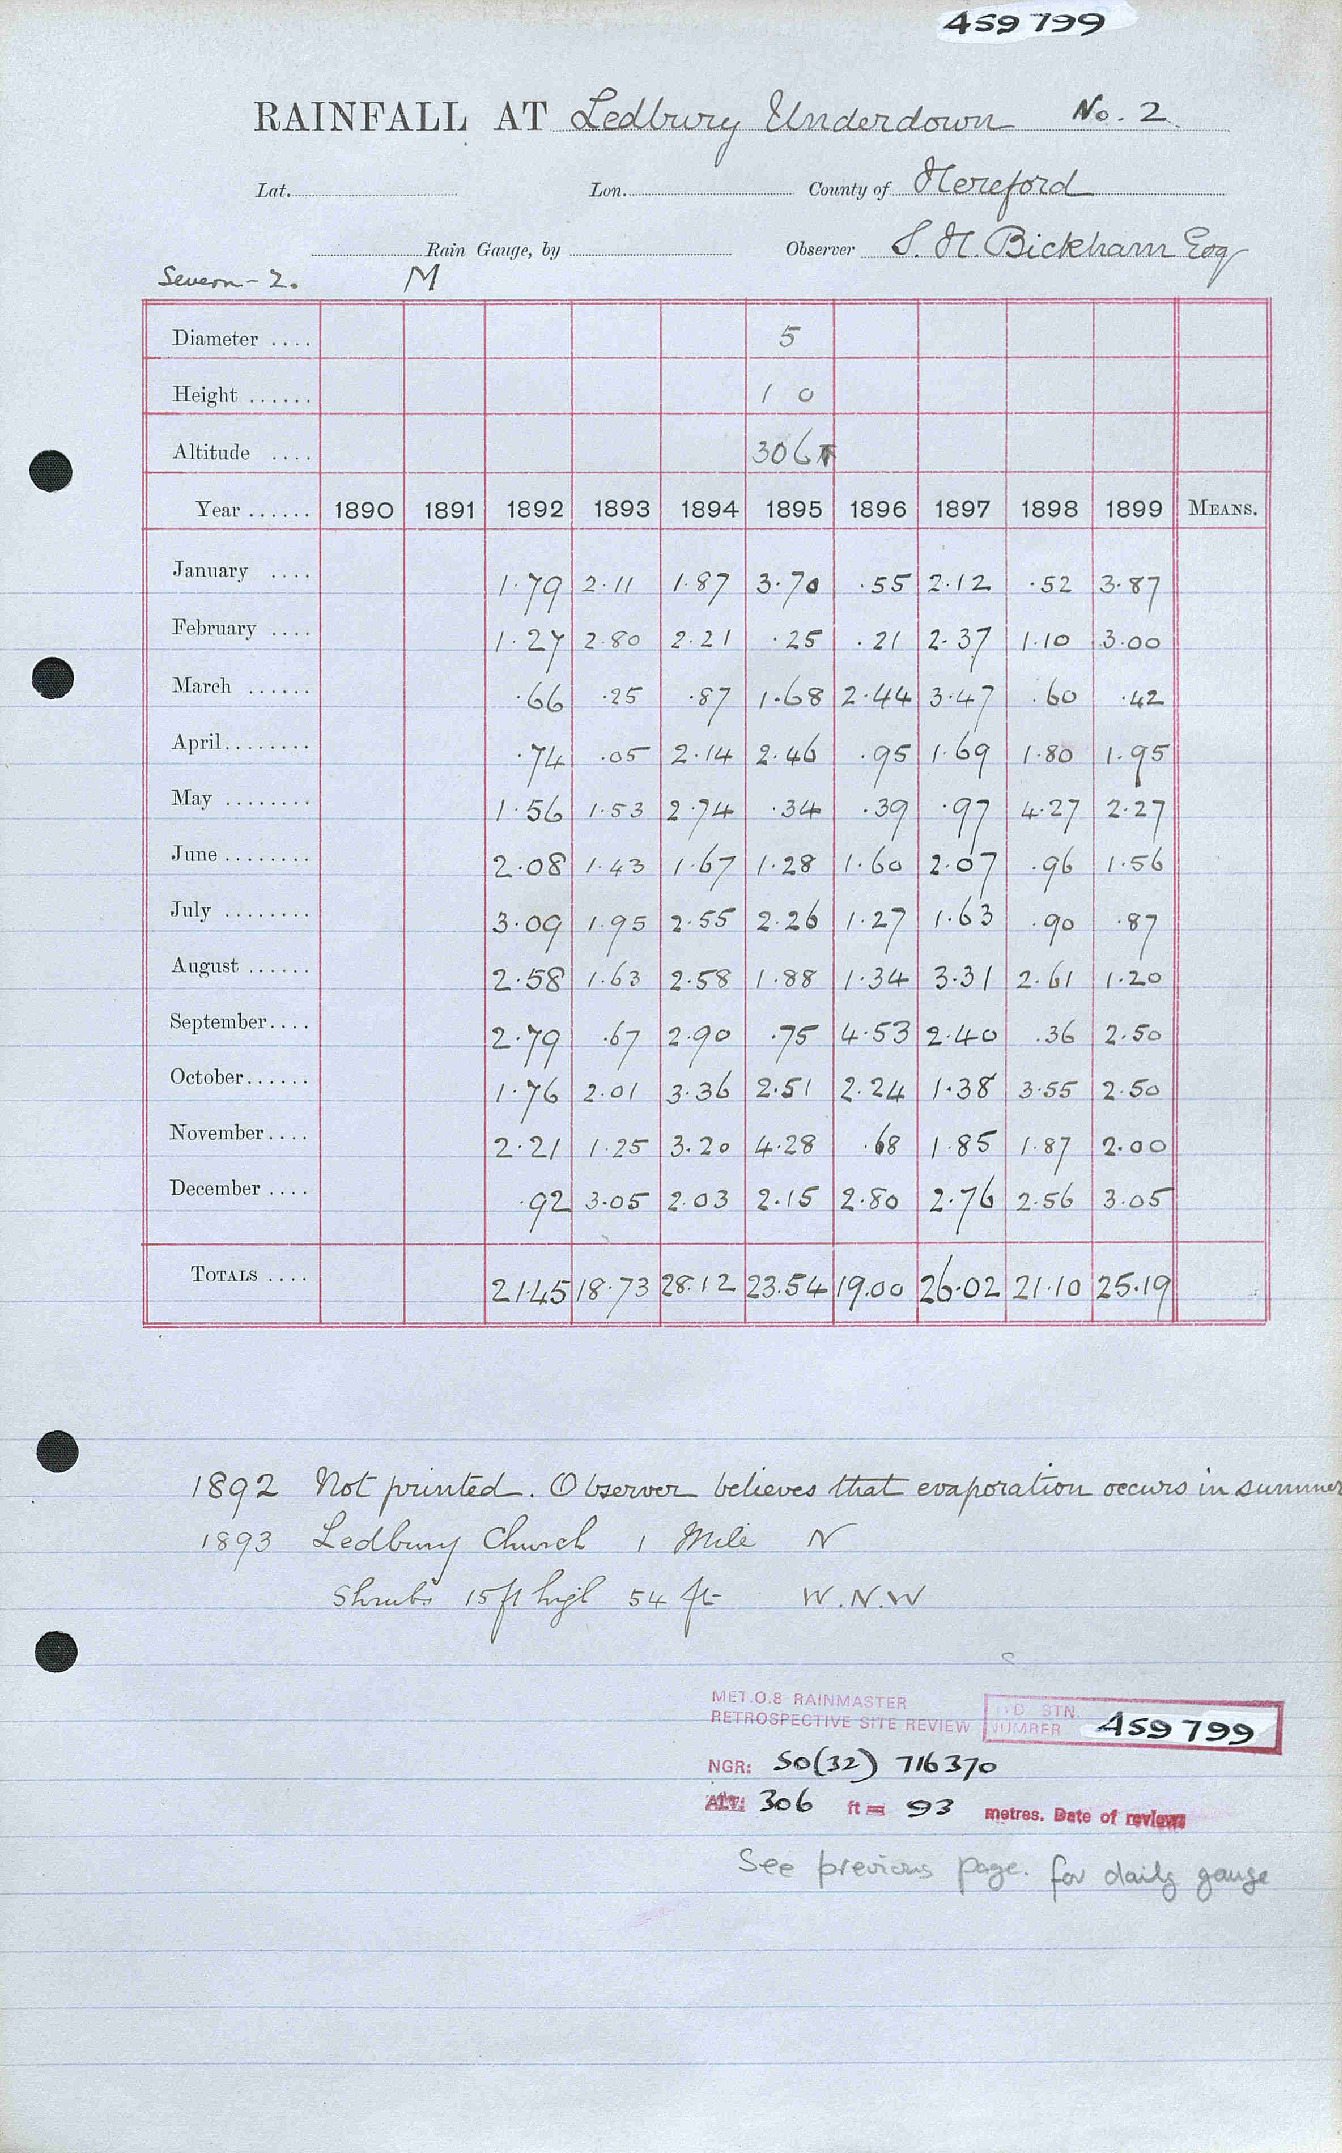 459799
RAINFALL AT Ledbury Underdown No. 2.
Lat. Lon. County of Hereford
Rain Gauge, by Observer S. H. Bickham Esq
Severn - 2. M
Diameter .... 5
Height ...... 1 0
Altitude .... 306
Year ...... 1890 1891 1892 1893 1894 1895 1896 1897 1898 1899 MEANS.
January .... 1.79 2.11 1.87 3.70 .55 2.12 .52 3.87
February .... 1.27 2.80 2.21 .25 .21 2.37 1.10 3.00
March ...... .66 .25 .87 1.68 2.44 3.47 .60 .42
April........ .74 .05 2.14 2.46 .95 1.69 1.80 1.95
May ........ 1.56 1.53 2.74 .34 .39 .97 4.27 2.27
June ........ 2.08 1.43 1.67 1.28 1.60 2.07 .96 1.56
July ........ 3.09 1.95 2.55 2.26 1.27 1.63 .90 .87
August ...... 2.58 1.63 2.58 1.88 1.34 3.31 2.61 1.20
September.... 2.79 .67 2.90 .75 4.53 2.40 .36 2.50
October...... 1.76 2.01 3.36 2.51 2.24 1.38 3.55 2.50
November.... 2.21 1.25 3.20 4.28 .68 1.85 1.87 2.00
December .... .92 3.05 2.03 2.15 2.80 2.76 2.56 3.05
TOTALS .... 21.45 18.73 28.12 23.54 19.00 26.02 21.10 25.19
1892 Not printed. Observer believes that evaporation occurs in summer
1893 Ledbury Church 1 Mile N
Shrubs 15 ft high 54 ft W.N.W
MET.O.8 RAINMASTER
RETROSPECTIVE SITE REVIEW STN. NUMBER 459799
NGR: SO(32) 716370
ALT: 306 ft = 93 metres. Date of review
See previous page. for daily gauge